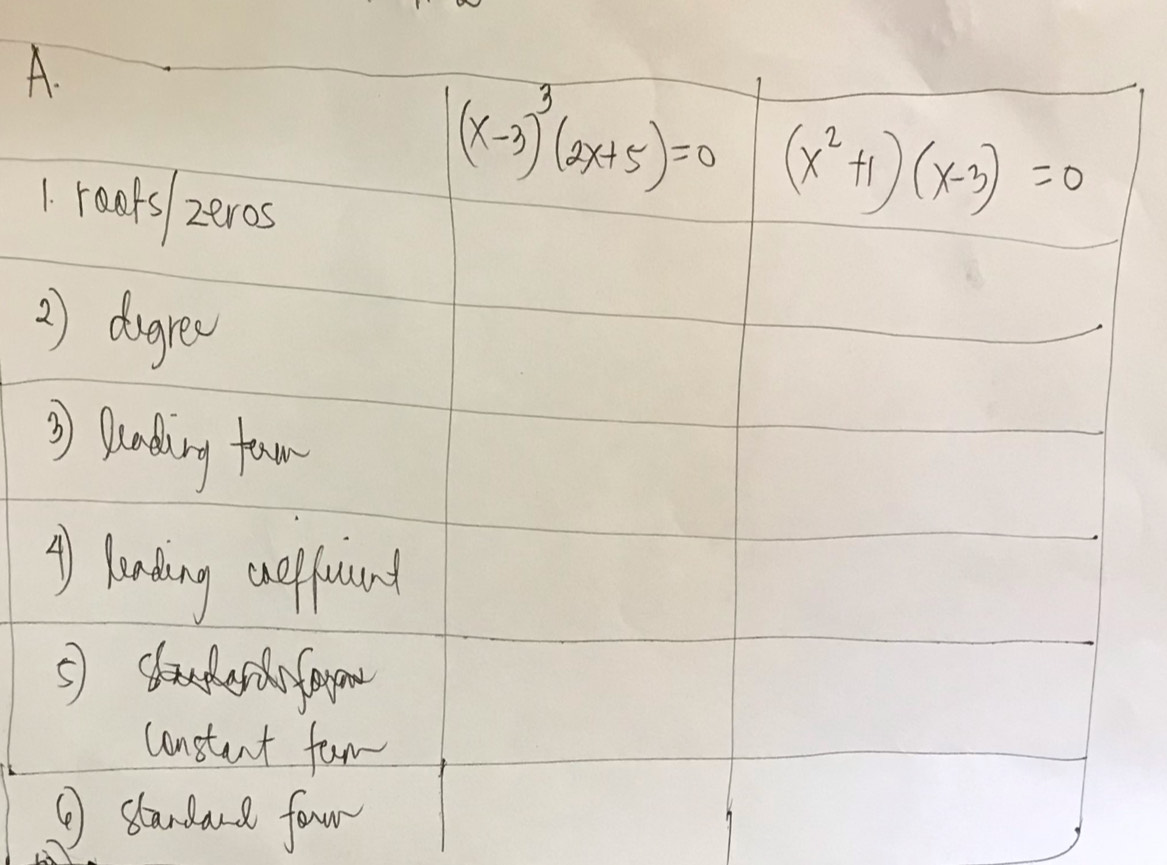 A.
(x-3)³(2x+5)=0
(x²+1)(x-3) =0
1. roots/zeros
2) degree
3) leading term
4) leading coefficient
5) standard form
constant term
6) standard form